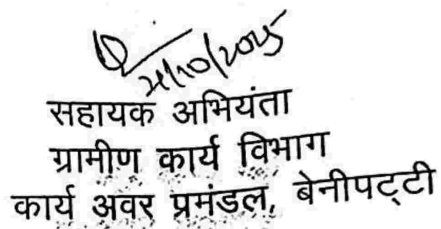 सहायक अभियंता
ग्रामीण कार्य विभाग
कार्य अवर प्रमंडल, बेनीपट्टी